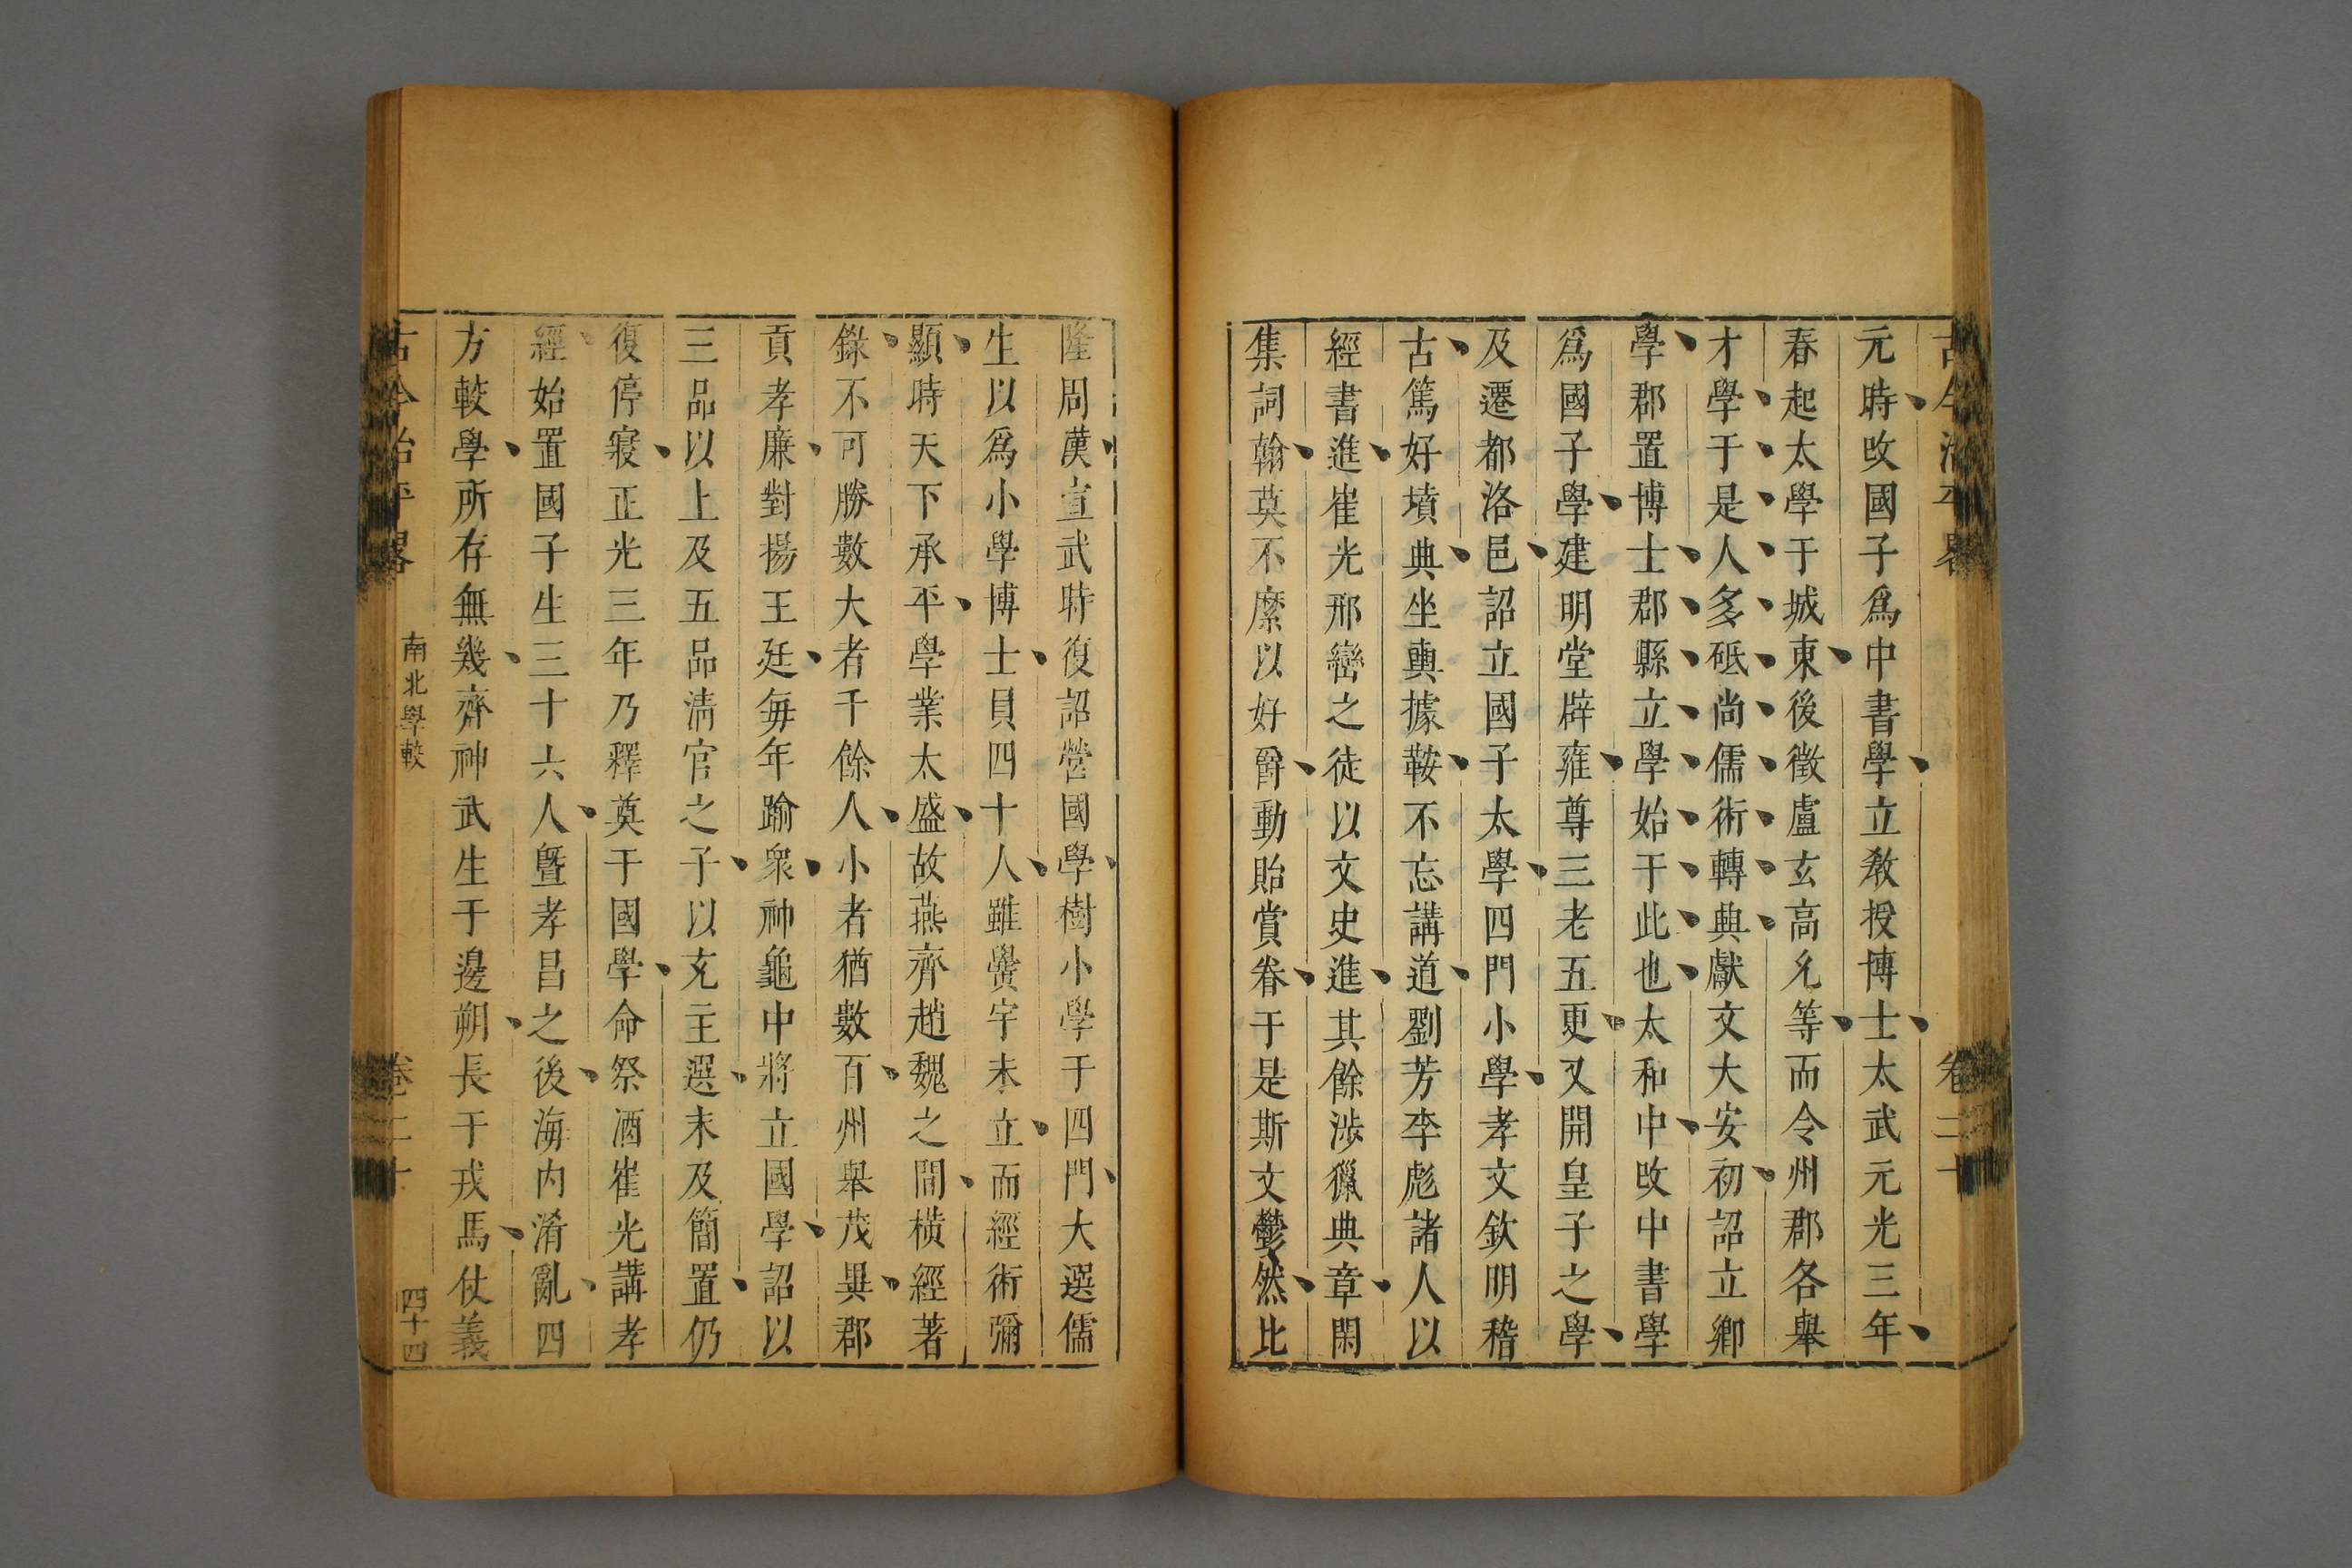 元時改國子爲中書學立敎授博士太武元光三年
春起太學于城東後徵盧玄高允等而令州郡各舉
才學于是人多砥尚儒術轉典獻文大安初詔立鄉
學郡置博士郡縣立學始于此也太和中改中書學
爲國子學建明堂辟雍尊三老五更又開皇子之學
及遷都洛邑詔立國子太學四門小學孝文欽明稽
古篤好墳典坐輿據鞍不忘講道劉芳李彪諸人以
經書進崔光邢巒之徒以文史進其餘涉獵典章閑
集詞翰莫不縻以好爵動貽賞眷于是斯文鬱然比
隆周漢宣武時復詔營國學樹小學于四門大選儒
生以爲小學博士員四十人雖黌宇未立而經術彌
顯時天下承平學業太盛故燕齊趙魏之間橫經著
錄不可勝數大者千餘人小者猶數百州舉茂異郡
貢孝廉對揚王廷每年踰衆神龜中將立國學詔以
三品以上及五品清官之子以充主選未及簡置仍
復停寢正光三年乃釋奠于國學命祭酒崔光講孝
經始置國子生三十六人曁孝昌之後海内淆亂四
方較學所存無幾齊神武生于邊朔長于戎馬仗義
古今治平畧 南北學較 卷二十 四十四